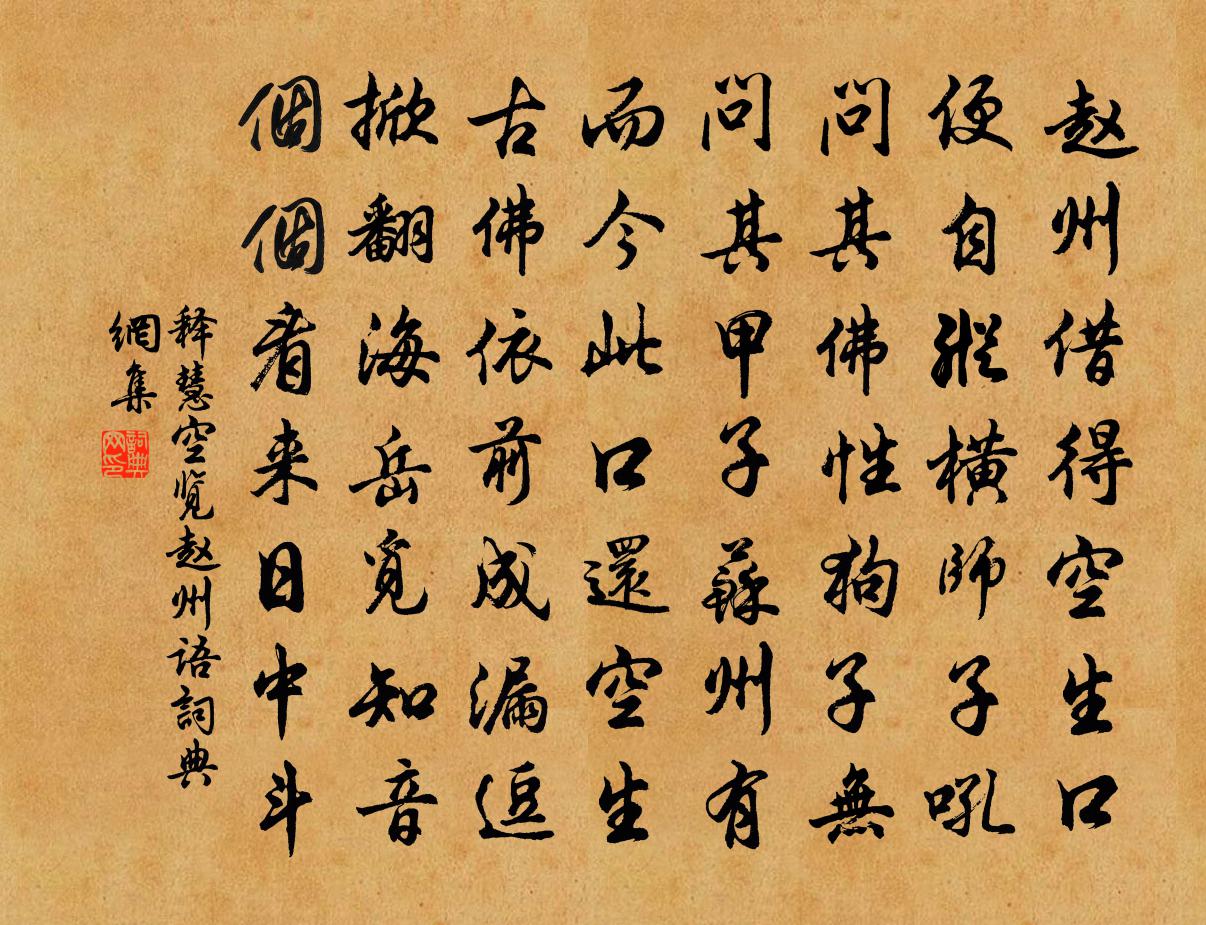 赵州借得空生口
便自縱橫師子吼
問其佛性狗子無
問其甲子蘇州有
而今此口還空生
古佛依前成漏逗
掀翻海岳覓知音
個個看来日中斗
释慧空览赵州语詞典
網集
詞典
网印